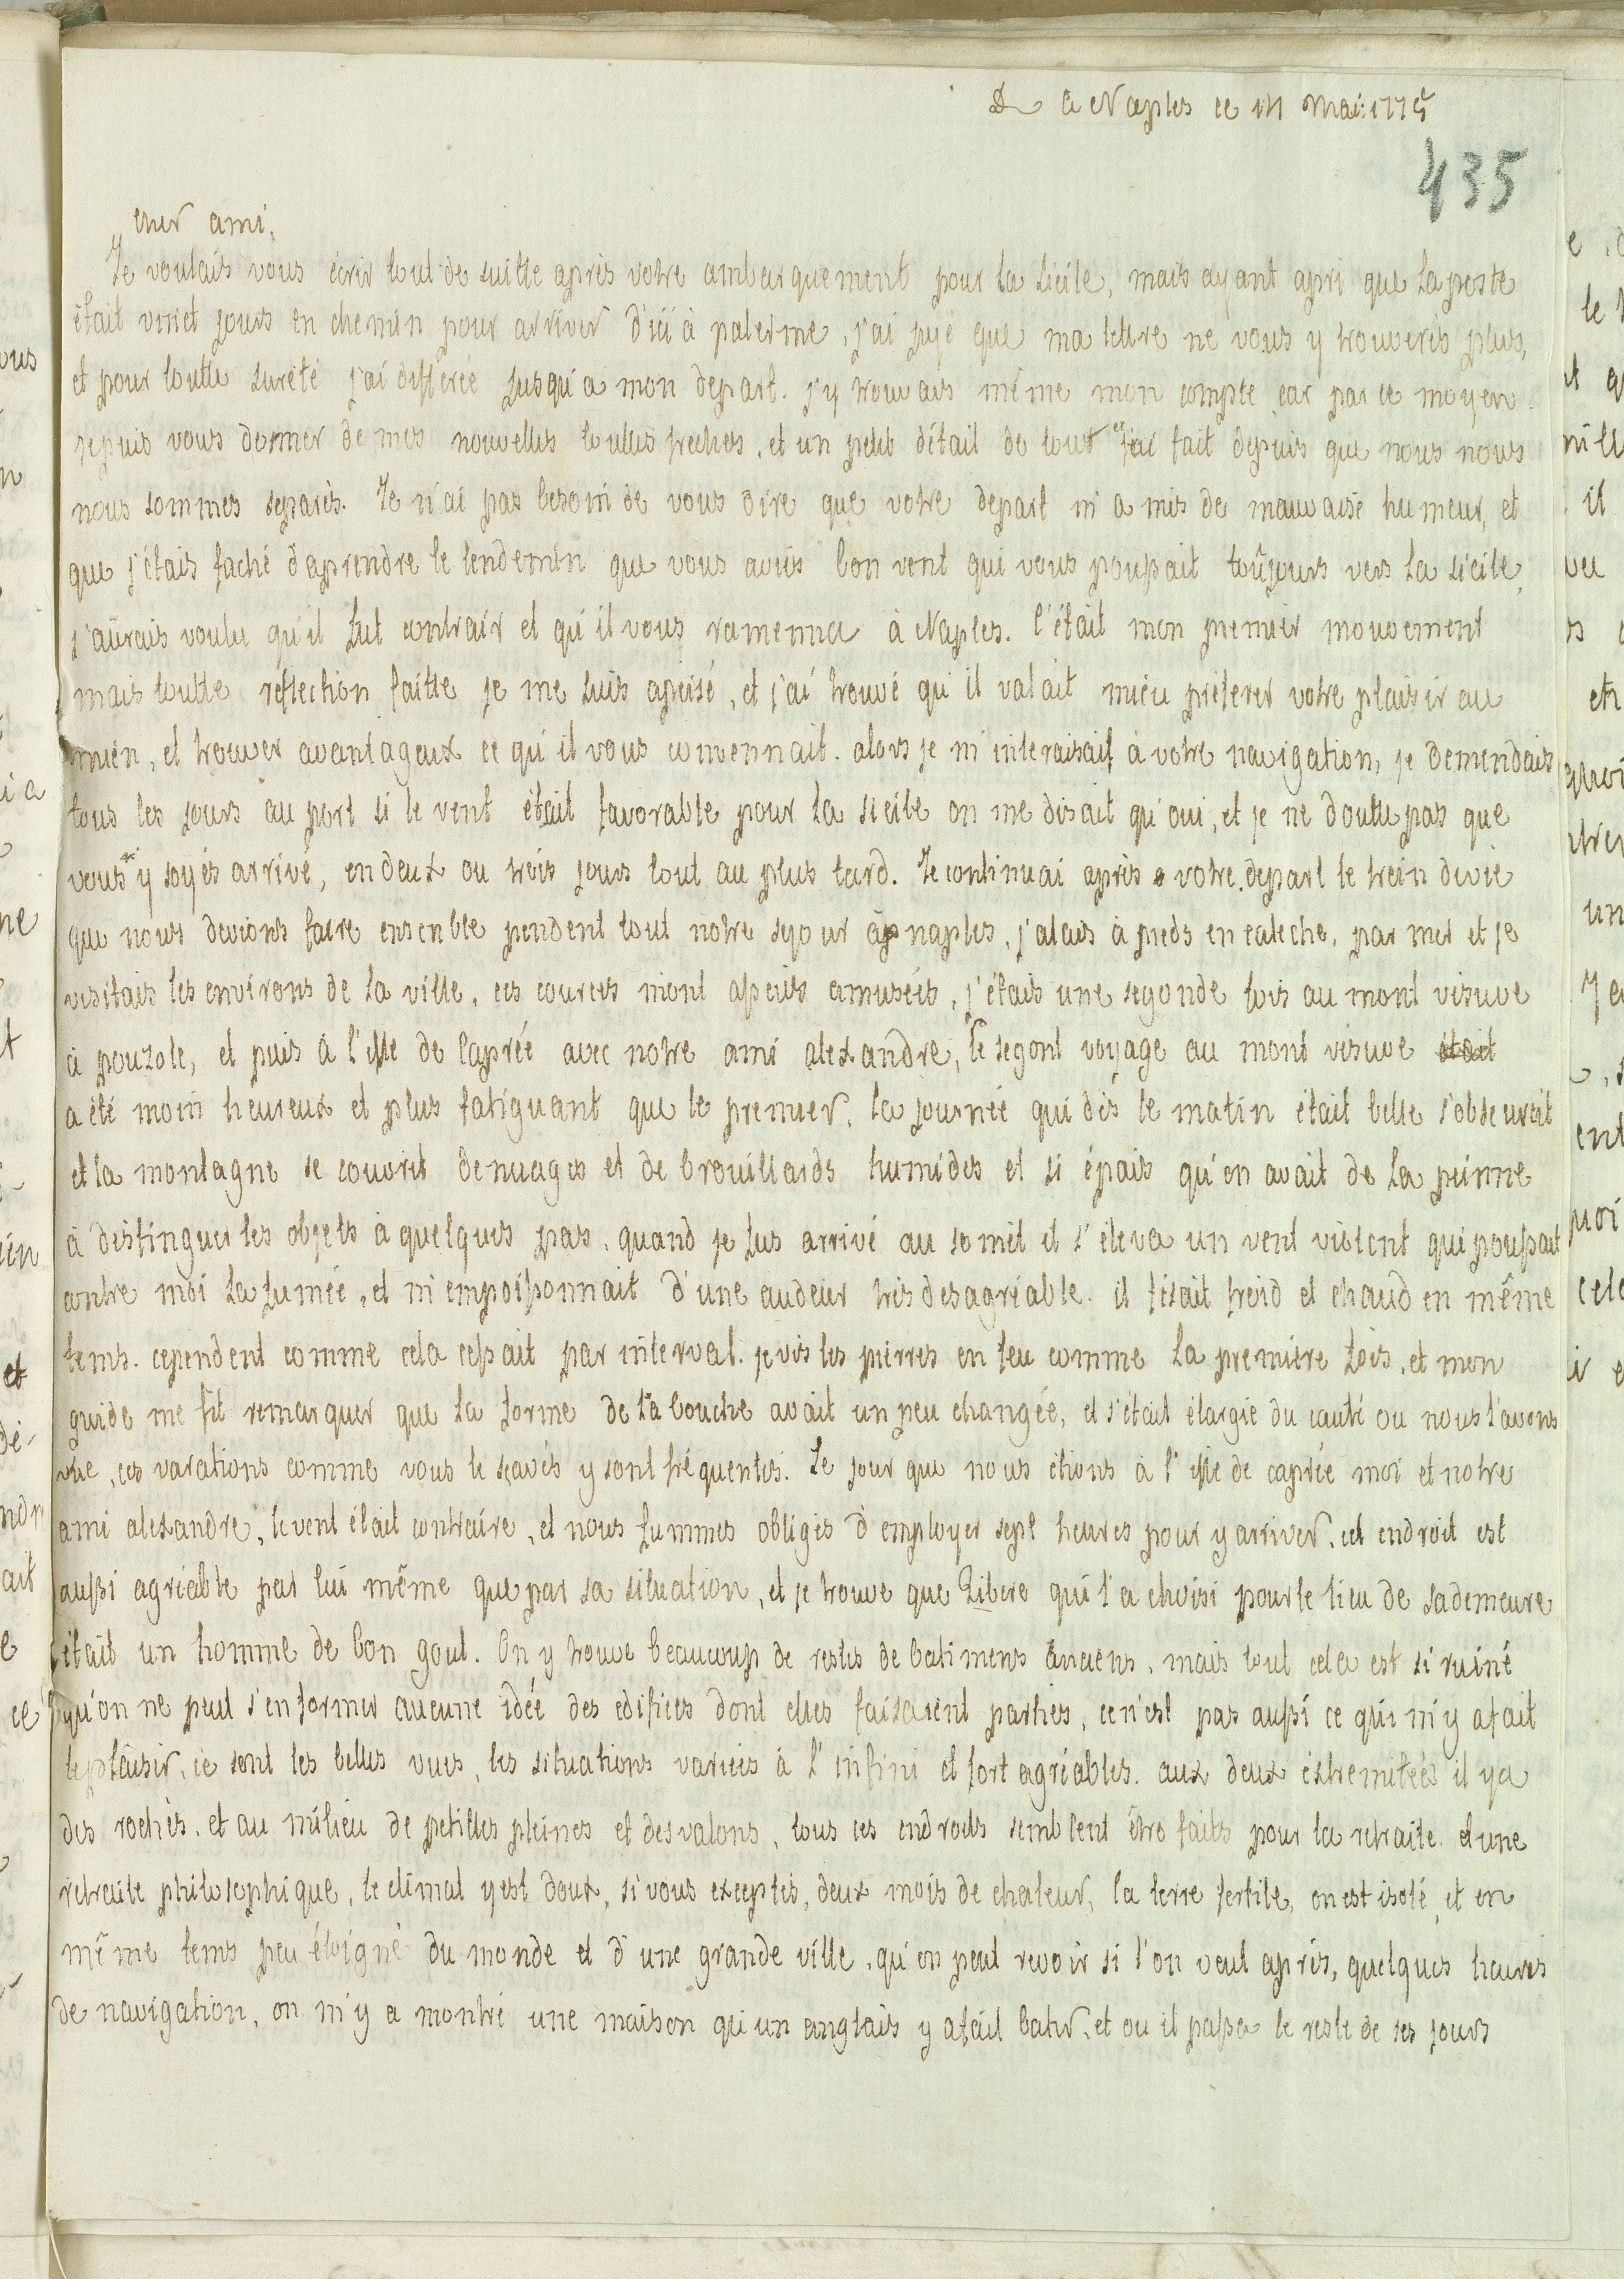 à Naples ce 14 Mai: 1775
435
cher ami,
Je voulais vous écrir tout de suitte après votre ambarquement pour la Sicile, mais ayant apri que la poste
était vinct jours en chemin pour arriver d'ici à palerme, j'ai jujé que ma lettre ne vous y trouverès plus,
et pour toutte sureté j'ai differée jusqu'a mon depart. j'y trouvais même mon compte car par ce moyen
je puis vous donner de mes nouvelles touttes freches, et un petit détail de tout ce que j'ai fait depuis que nous nous
nous sommes separès. Je n'ai pas besoin de vous dire que votre depart m'a mis de mauvaise humeur, et
que j'étais faché d'aprendre le lendemin que vous aviès bon vent qui vous poussait toûjours vers la sicile,
j'aûrais voulu qu'il fut contrair et qu'il vous ramenna à Naples. C'était mon premier mouvement
mais toutte reflection faitte je me suis apaisé, et j'ai trouvé qu'il valait mieu préferer votre plaisir au
mien, et trouver avantageux ce qu'il vous convennait. alors je m'interaisait à votre navigation, je demendais
tous les jours au port si le vent était favorable pour la sicile on me disait qu'oui, et je ne doutte pas que
vous y soyés arrivé, en deux ou trois jours tout au plus tard. Je continuai après votre depart le trein de vie
que nous devions faire ensenble pendent tout notre sejour à naples, j'alais à pieds en caleche, par mer et je
visitais les environs de la ville, ces courses m'ont assèiés amusées, j'étais une segonde fois au mont visuve
à pouzole, et puis à l'isle de Caprée avec notre ami alexandre, le segont voyage au mont visuve était
a été moin heureux et plus fatiguant que le premier. la journée qui dès le matin était belle s'obscurcit
et la montagne se couvrit de nuages et de brouillards humides et si épais qu'on avait de la peinne
à distinguer les objets à quelques pas. quand je fus arrivé au somèt il s'éleva un vent violent qui poussait
contre moi la fumée, et m'empoissonnait d'une audeur très desagréable. il fésait froid et chaud en même
tems. cependent comme cela cessait par interval. je vis les pierres en feu comme la première fois, et mon
guide me fit remarquer que la forme de la bouche avait un peu changée, et s'était élargie du cauté ou nous l'avons
vüe, ces varations comme vous le sçavés y sont fréquentes. Le jour que nous étions à l'isle de caprée moi et notre
ami alexandre, le vent était contraire, et nous fummes obligés d'employer sept heures pour y arriver. cet endroit est
aussi agréable par lui même que par sa situation, et je trouve que Tibere qui l'a choisi pour le lieu de sa demeure
était un homme de bon gout. On y trouve beaucoup de restes de batimens anciens, mais tout cela est si ruiné
qu'on ne peut s'en former aucune idée des edifices dont elles faisaient parties, ce n'est pas aussi ce qui m'y a fait
le plaîsir, ce sont les belles vues, les situations variées à l'infini et fort agréables. aux deux éxtremitées il y a
des rochès, et au milieu de petittes pleines et des valons, tous ces endroits semblent être faits pour la retraite et une
retraite philosophique, le climat y est doux, si vous exceptés, deux mois de chaleur, la terre fertile, on est isolé, et en
même tems peu éloigné du monde et d'une grande ville, qu'on peut revoir si l'on veut après, quelques heures
de navigation, on m'y a montré une maison qu'un anglais y a fait batir, et ou il passa le reste de ses jours